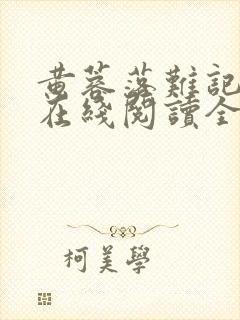 黄蓉落難記
在綫閱讀全
柯美學